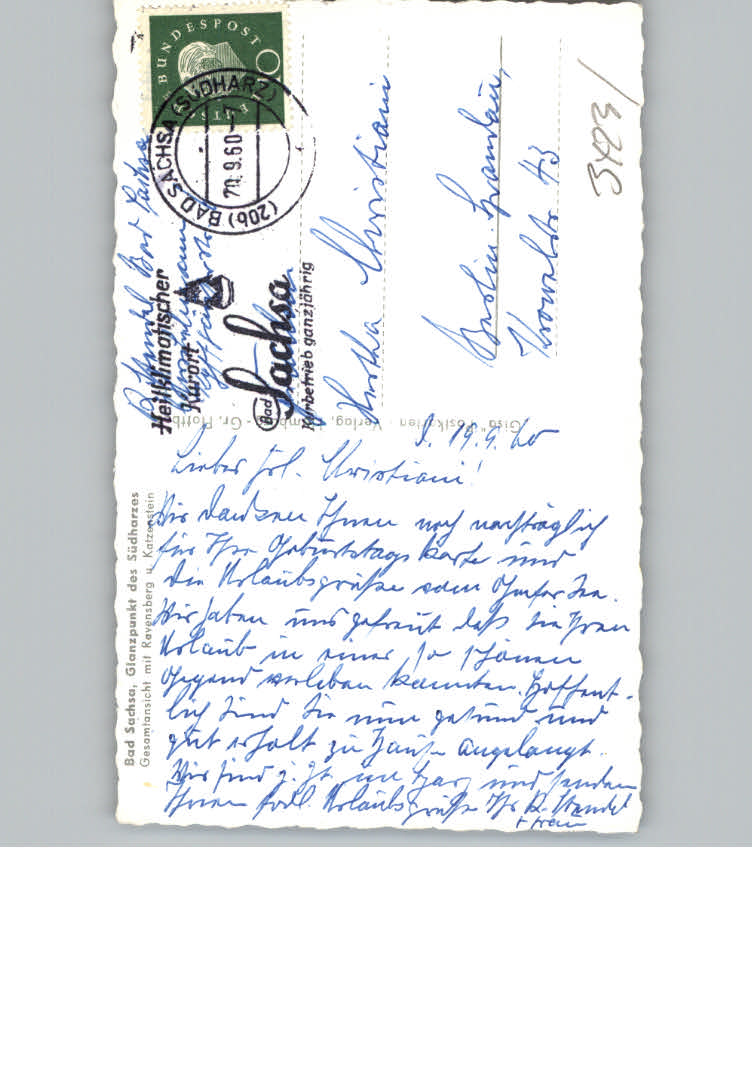 BUNDESPOST
(20b) BAD SACHSA (SÜDHARZ)
20.9.60-7
Heilklimatischer
Kurort
Bad Sachsa
Kurbetrieb ganzjährig
Bad Sachsa
Hertha Christiani
Berlin. Spandau,
43
3423/
Bad Sachsa, Glanzpunkt des Südharzes
Gesamtansicht mit Ravensberg u. Katzenstein
Verlag, Hamburg - Gr. Flottb
d. 19.9.60
Liebes Frl. Christiani!
Wir danken Ihnen noch nachträglich
für Ihre Geburtstagskarte und
die Urlaubsgrüße vom
Wir haben uns gefreut daß Sie Ihren
Urlaub in einer so schönen
Gegend verleben konnten. Hoffent-
lich sind Sie nun gesund und
gut erholt zu Hause angelangt.
Wir sind z. Zt. im Harz und senden
Ihnen frdl. Urlaubsgrüße Ihr
+ Frau